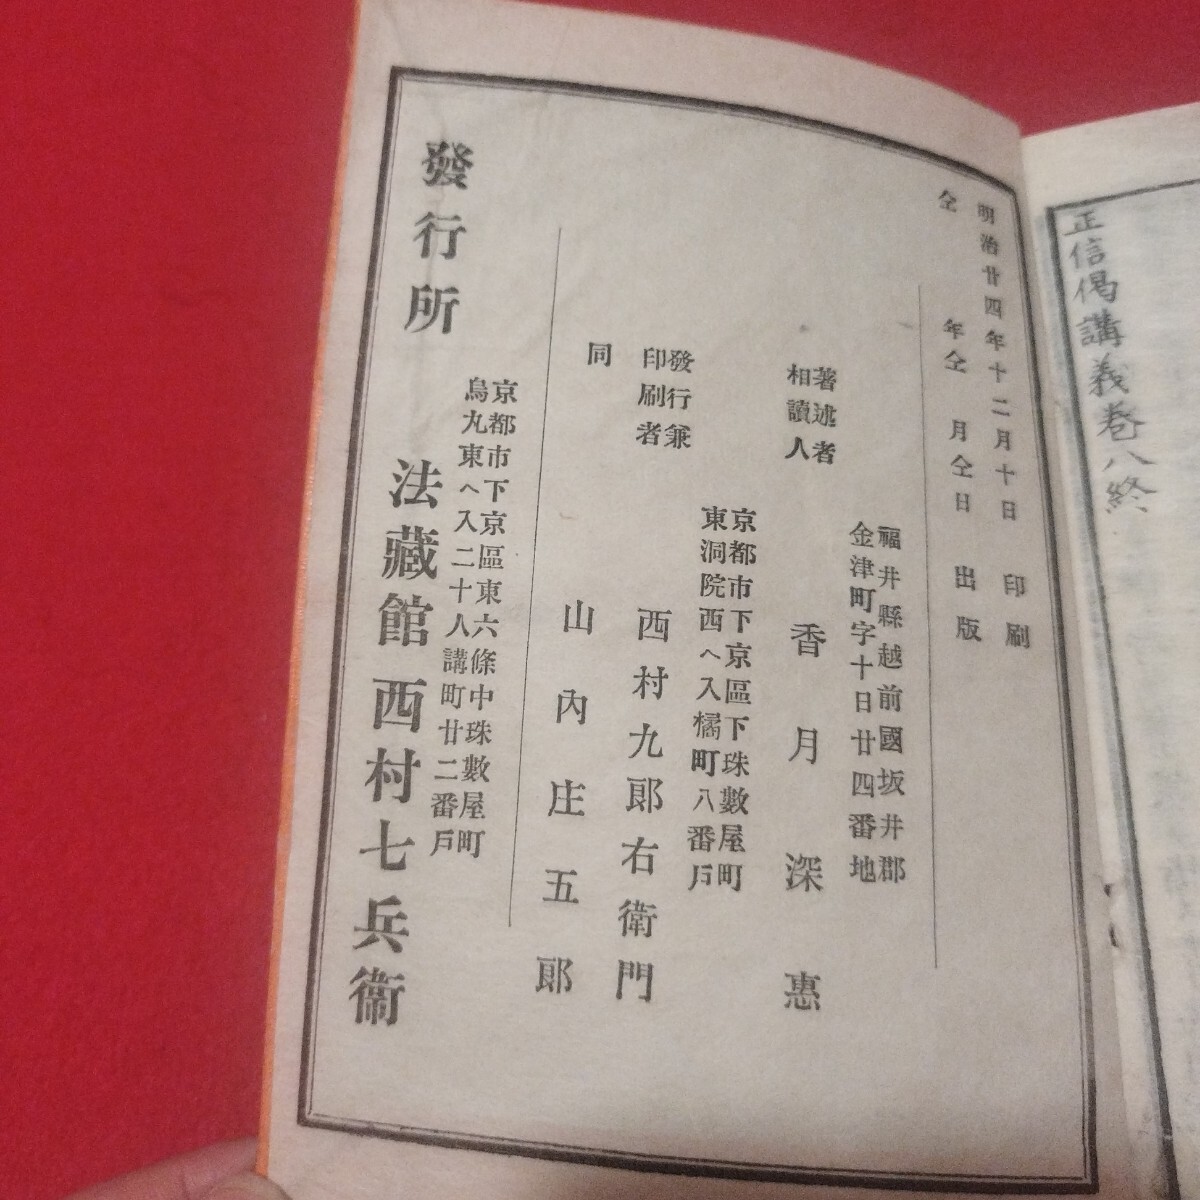 正信偈講義卷八終
明治廿四年十二月十日印刷
仝年仝月仝日出版
福井縣越前國坂井郡
金津町字十日廿四番地
著述者
相讀人
香月深惠
京都市下京區下珠數屋町
東洞院西へ入橘町八番戶
發行兼
印刷者
西村九郎右衛門
同
山內庄五郎
京都市下京區東六條中珠數屋町
烏丸東へ入二十人講町廿二番戶
發行所
法藏館西村七兵衞